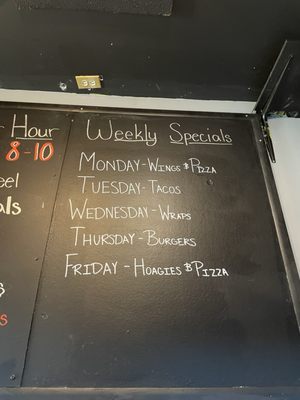 Hour
8-10
Weekly Specials
Monday-Wings & Pizza
Tuesday-Tacos
Wednesday-Wraps
Thursday-Burgers
Friday-Hoagies & Pizza